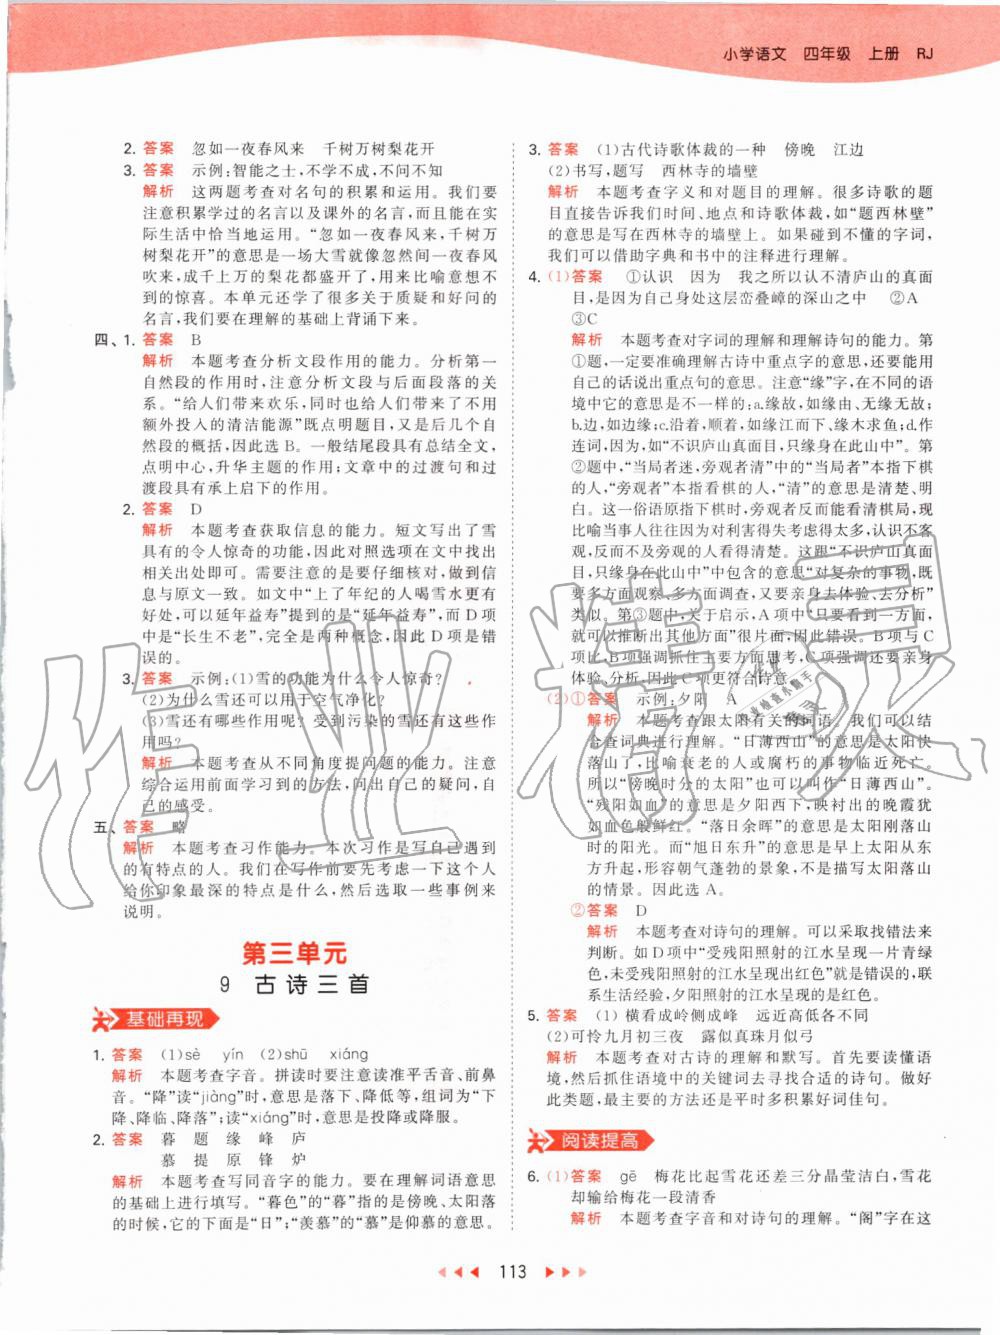 小学语文 四年级 上册 RJ
2. 答案 忽如一夜春风来 千树万树梨花开
3. 答案 示例:智能之士,不学不成,不问不知
解析 这两题考查对名句的积累和运用。我们要
注意积累学过的名言以及课外的名言,而且能在实
际生活中恰当地运用。“忽如一夜春风来,千树万
树梨花开”的意思是一场大雪就像忽然间一夜春风
吹来,成千上万的梨花都盛开了,来比喻意想不到
的惊喜。本单元还学了很多关于质疑和好问的
名言,我们要在理解的基础上背诵下来。
四、1. 答案 B
解析 本题考查分析文段作用的能力。分析第一
自然段的作用时,注意分析文段与后面段落的关
系。“给人们带来欢乐,同时也给人们带来了无须
额外投入的清洁能源”既点明题目,又是后几个自
然段的概括,因此选 B。一般结尾段具有总结全文,
点明中心,升华主题的作用;文章中的过渡句和过
渡段具有承上启下的作用。
2. 答案 D
解析 本题考查获取信息的能力。短文写出了雪
具有的令人惊奇的功能,因此对照选项在文中找出
相关出处即可。需要注意的是要仔细核对,做到信
息与原文一致。如文中“上了年纪的人喝雪水更有
好处,可以延年益寿”提到的是“延年益寿”,而 D 项
中是“长生不老”,完全是两种概念,因此 D 项是错
误的。
3. 答案 示例:(1)雪的功能为什么令人惊奇?
(2)为什么雪还可以用于空气净化?
(3)雪还有哪些作用呢? 受到污染的雪还有这些作
用吗?
解析 本题考查从不同角度提问题的能力。注意
综合运用前面学习到的方法,提出自己的疑问,自
己的感受。
五、答案 略
解析 本题考查习作能力。本次习作是写自己遇到
的有特点的人。我们在写作前要先考虑一下这个人
给你印象最深的特点是什么,然后选取一些事例来
说明。
第三单元
9 古诗三首
基础再现
1. 答案 (1)sè yín (2)shū xiáng
解析 本题考查字音。拼读时要注意读准平舌音、前鼻
音。“降”读“jiàng”时,意思是落下、降低等,组词为“下
降、降临、降落”;读“xiáng”时,意思是投降或降服。
2. 答案 暮 题 缘 峰 庐
慕 提 原 锋 炉
解析 本题考查写同音字的能力。要在理解词语意思
的基础上进行填写。“暮色”的“暮”指的是傍晚、太阳落
的时候,它的下面是“日”;“羡慕”的“慕”是仰慕的意思。
3. 答案 (1)古代诗歌体裁的一种 傍晚 江边
(2)书写,题写 西林寺的墙壁
解析 本题考查字义和对题目的理解。很多诗歌的题
目直接告诉我们时间、地点和诗歌体裁,如“题西林壁”
的意思是写在西林寺的墙壁上。如果碰到不懂的字词,
我们可以借助字典和书中的注释进行理解。
4. (1)答案 ①认识 因为 我之所以认不清庐山的真面
目,是因为自己身处这层峦叠嶂的深山之中 ②A
③C
解析 本题考查对字词的理解和理解诗句的能力。第
①题,一定要准确理解古诗中重点字的意思,还要能用
自己的话说出重点句的意思。注意“缘”字,在不同的语
境中它的意思是不一样的:a.缘故,如缘由、无缘无故;
b.边,如边缘;c.沿着,顺着,如缘江而下、缘木求鱼;d.作
连词,因为,如“不识庐山真面目,只缘身在此山中”。第
②题中,“当局者迷,旁观者清”中的“当局者”本指下棋
的人,“旁观者”本指看棋的人,“清”的意思是清楚、明
白。这一俗语原指下棋时,旁观者反而能看清棋局,现
比喻当事人往往因为对利害得失考虑得太多,认识不客
观,反而不及旁观的人看得清楚。这跟“不识庐山真面
目,只缘身在此山中”中包含的意思“对复杂的事物,既
要多方面观察、多方面调查,又要亲身去体验、去分析”
类似。第③题中,关于启示,A项中“只要看到一方面,
就可以推断出其他方面”很片面,因此错误。B项与 C
项比,B项强调抓住主要方面思考,C项强调还要亲身
体验,去分析,因此C项更符合诗意。
(2)①答案 示例:夕阳 A
解析 本题考查跟太阳有关的词语。我们可以结
合查词典进行理解。“日薄西山”的意思是太阳快
落山了,比喻衰老的人或腐朽的事物临近死亡。
所以“傍晚时分的太阳”也可以叫作“日薄西山”。
“残阳如血”的意思是夕阳西下,映衬出的晚霞犹
如血色般鲜红。“落日余晖”的意思是太阳刚落山
时的阳光。而“旭日东升”的意思是早上太阳刚从
东方升起,形容朝气蓬勃的景象,不是描写太阳落山
的情景。因此选 A。
②答案 D
解析 本题考查对诗句的理解。可以采取找错法来
判断。如 D 项中“受残阳照射的江水呈现一片青绿
色,未受残阳照射的江水呈现出红色”是错误的,联
系生活经验,夕阳照射的江水呈现的是红色。
5. 答案 (1) 横看成岭侧成峰 远近高低各不同
(2)可怜九月初三夜 露似真珠月似弓
解析 本题考查对古诗的理解和默写。首先要读懂语
境,然后抓住语境中的关键词去寻找合适的诗句。做好
此类题,最主要的方法还是平时多积累好词佳句。
阅读提高
6. (1)答案 gē 梅花比起雪花还差三分晶莹洁白,雪花
却输给梅花一段清香
解析 本题考查字音和对诗句的理解。“阁”字在这
113
作业精灵